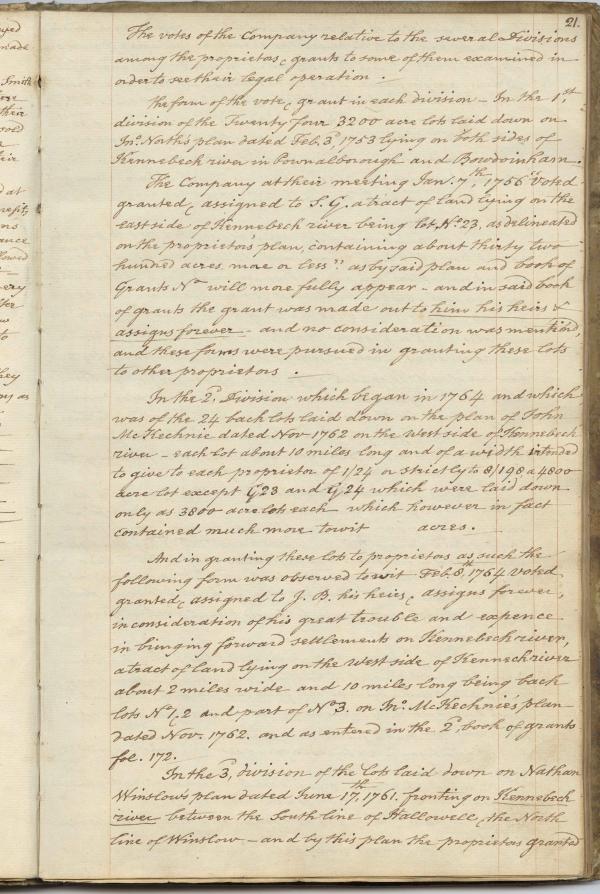 21.
The votes of the Company relative to the several Divisions
among the proprietors & grants to some of them examined in
order to see their legal operation.
The form of the vote & grant in each division - In the 1st,
division of the Twenty four 3200 acre lots laid down on
Jno. North's plan dated Feb. 3d, 1753 lying on both sides of
Kennebeck river in Pownalborough and Bowdoinham.
The Company at their meeting Jan. 7th, 1756 "Voted
granted & assigned to S. G. a tract of land lying on the
east side of Kennebeck river being lot No. 23, as delineated
on the proprietor's plan, containing about thirty two
hundred acres more or less" as by said plan and book of
Grants No. will more fully appear - and in said book
of grants the grant was made out to him his heirs &
assigns forever - and no consideration was mention'd,
and these forms were pursued in granting these lots
to other proprietors.
In the 2d, Division which began in 1764 and which
was of the 24 back lots laid down on the plan of John
McKechnie dated Nov 1762 on the West side of Kennebeck
river - each lot about 10 miles long and of a width intended
to give to each proprietor of 1/24 or strictly to 8/198 a 4800
acre lot except G 23 and G 24 which were laid down
only as 3800 acre lots each which however in fact
contained much more towit acres.
And in granting these lots to proprietors as such the
following form was observed to wit Feb. 8th, 1764 Voted
granted & assigned to J. B. his heirs & assigns forever,
in consideration of his great trouble and expence
in bringing forward settlements on Kennebeck river,
a tract of land lying on the West side of Kenneck river
about 2 miles wide and 10 miles long being back
lots No 1, 2 and part of No 3. on Jno. McKechnie's plan
dated Nov. 1762. and as entered in the 2d, book of grants
fol. 172.
In the 3d, division of the lots laid down on Nathan
Winslow's plan dated June 17th, 1761. fronting on Kennebeck
river between the South line of Hallowell & the North
line of Winslow - and by this plan the proprietors granted